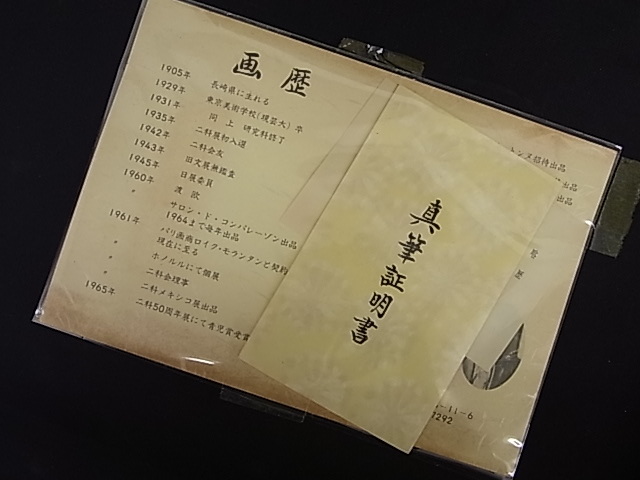 画歴
1905年 長崎県に生れる
1929年 東京美術学校(現芸大)卒
1931年 同 上 研究科終了
1935年 二科展初入選
1942年 二科会友
1943年 旧文展無鑑査
1945年 日展委員
1960年 渡 欧
〃 サロン・ド・コンパレーゾン出品
1964まで毎年出品
1961年 パリ画商ロイク・モランタンと契約
現在に至る
〃 ホノルルにて個展
〃 二科会理事
〃 二科メキシコ展出品
1965年 二科50周年展にて青児賞受賞
真筆証明書
トンヌ招待出品
出品
出品
-11-6
292